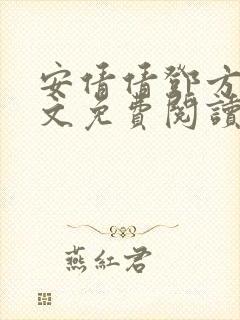 安倩倩鄧方
文免費閱讀
燕紅君